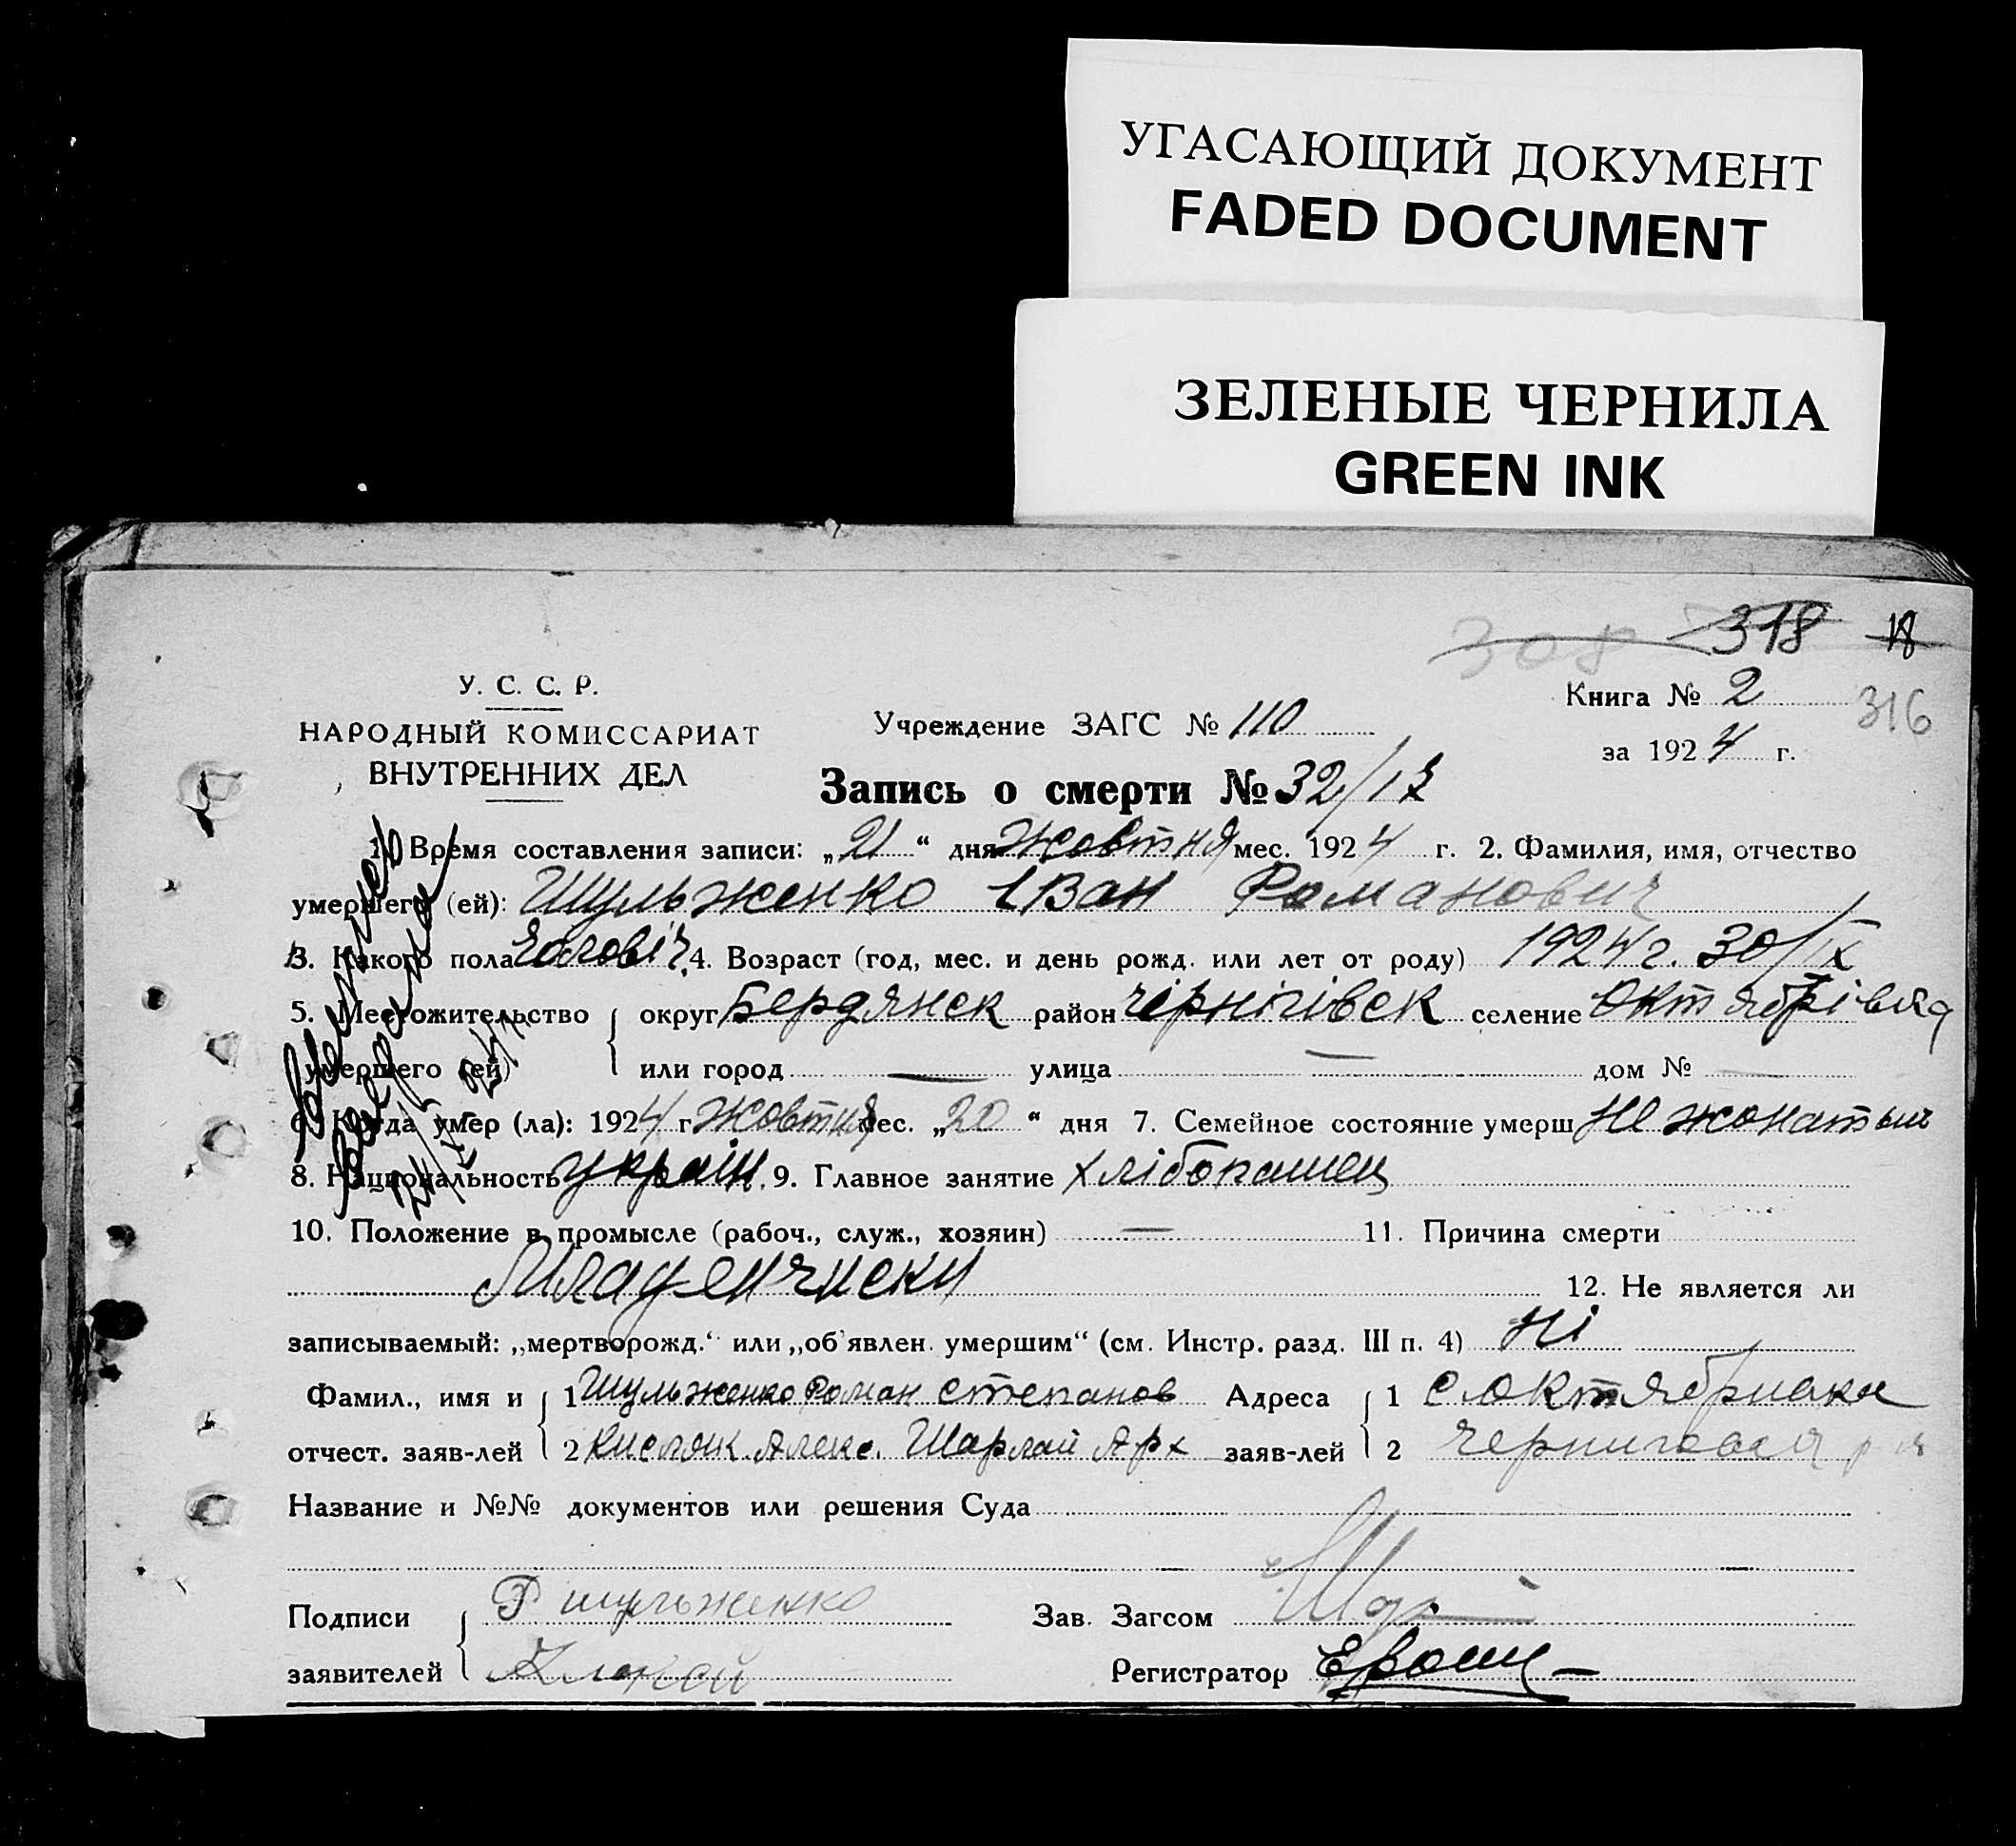 УГАСАЮЩИЙ ДОКУМЕНТ
FADED DOCUMENT
ЗЕЛЕНЫЕ ЧЕРНИЛА
GREEN INK
308 318 18
У. С. С. Р.
НАРОДНЫЙ КОМИССАРИАТ
ВНУТРЕННИХ ДЕЛ
Учреждение ЗАГС № 110
Книга № 2 316
за 1924 г.
Запись о смерти № 32/
1. Время составления записи: „21“ дня Жовтня мес. 1924 г. 2. Фамилия, имя, отчество
умершего (ей): Шульженко Іван Романович
3. Какого пола чоловіч. 4. Возраст (год, мес. и день рожд. или лет от роду) 1924 г. 30/IX
5. Местожительство округ Бердянск район Чернігівск селение
умершего (ей) или город — улица — дом № —
6. Когда умер (ла): 1924 г. Жовтня мес. „20“ дня 7. Семейное состояние умерш не жонатый
8. Национальность україн. 9. Главное занятие хлібопашец
10. Положение в промысле (рабоч., служ., хозяин) — 11. Причина смерти
Младенчиски 12. Не является ли
записываемый: „мертворожд.“ или „об'явлен. умершим“ (см. Инстр. разд. III п. 4) Ні
Фамил., имя и 1 Шульженко Роман Степанов Адреса 1
отчест. заяв-лей 2 Алекс. Шарлай Арх заяв-лей 2
Название и №№ документов или решения Суда
Подписи Р Шульженко Зав. Загсом
заявителей Регистратор